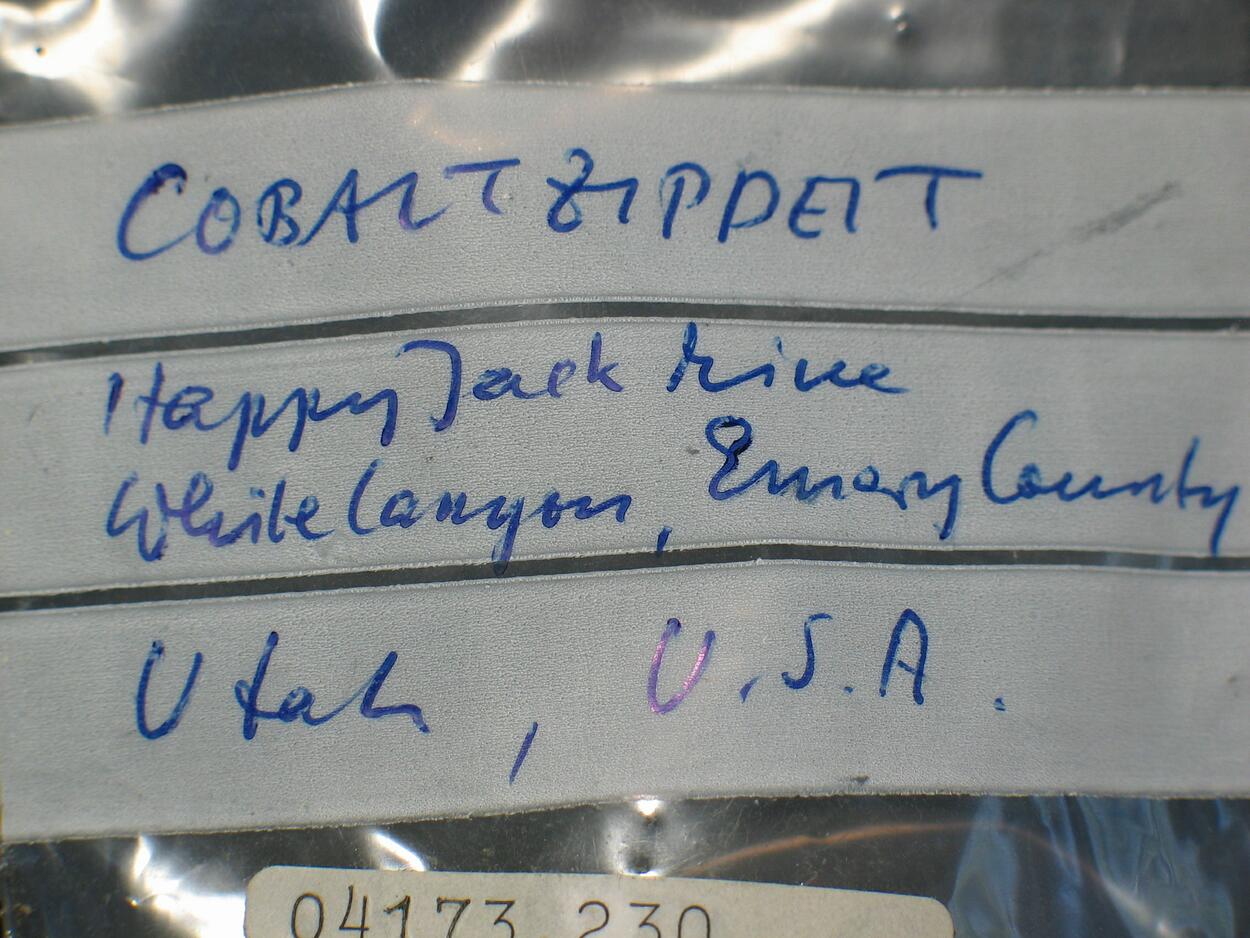 COBALTZIPPEIT
Happy Jack Mine
White Canyon, Emery County
Utah, U.S.A.
04173 230